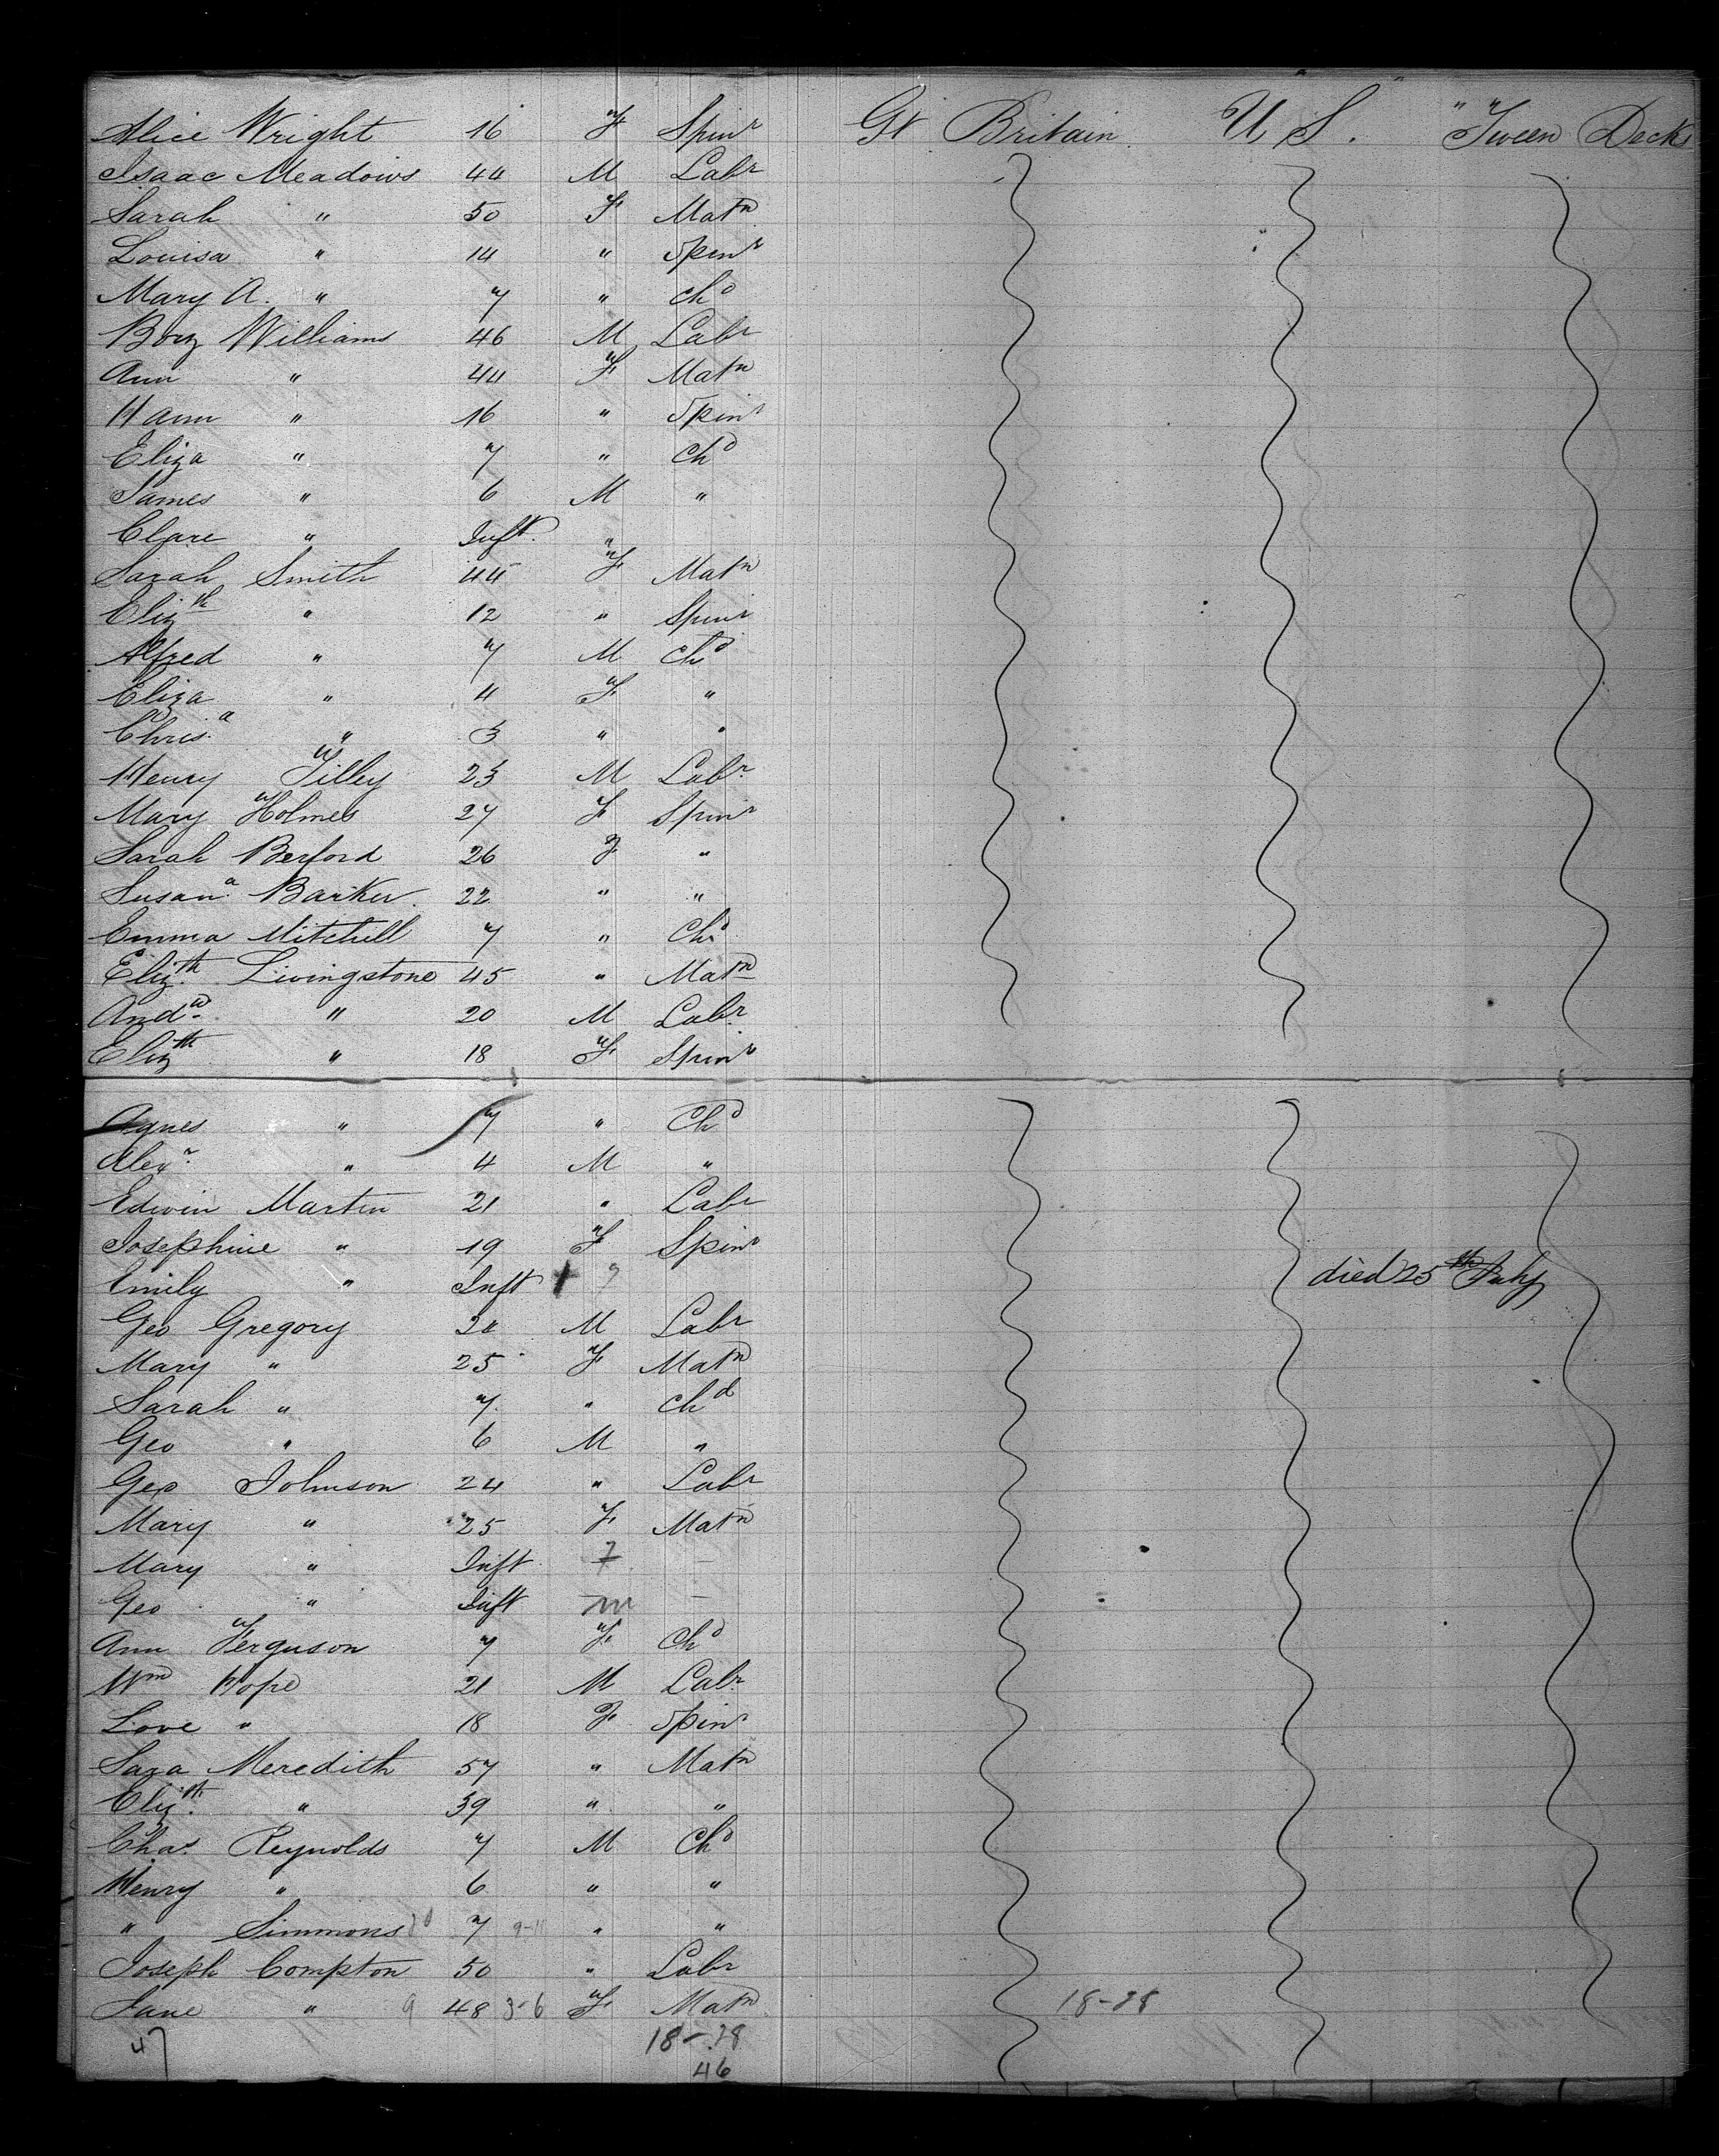 Alice Wright 16 F Spinr Gt Britain U S. "Tween Decks
Isaac Meadows 44 M Labr
Sarah " 50 F Matn
Louisa " 14 " Spinr
Mary A. " 7 " Chd
Williams 46 M Labr
Ann " 44 F Matn
Hann " 16 " Spinr
Eliza " 7 " Chd
James " 6 M "
Clare " Inft "
Sarah Smith 44 F Matn
Elizth " 12 " Spinr
Alfred " 7 M Chd
Eliza " 4 F "
Chris.a " 3 " "
Henry Tilley 23 M Labr
Mary Holmes 27 F Spinr
Sarah Berford 26 F "
Susan.a Barker. 22 " "
Emma Mitchell 7 " Chd
Eliz.th Livingstone 45 " Matn
Andw " 20 M Labr
Elizth " 18 F Spinr
Agnes " 7 " Chd
Alexr. " 4 M "
Edwin Martin 21 " Labr
Josephine " 19 F Spinr
Emily " Inft died 25th July
Geo Gregory M Labr
Mary " 25 F Matn
Sarah " 7 " Chd
Geo " 6 M "
Geo Johnson 24 " Labr
Mary " 25 F Matn
Mary " Inft F –
Geo " Inft m –
Ann Ferguson 7 F Chd
Wm Hope 21 M Labr
Love " 18 F Spinr
Sara Meredith 57 " Matn
Eliz.th " 39 " "
Chas. Reynolds 7 M Chd
Henry " 6 " "
" Simmons 7 9-11 " "
Joseph Compton 50 " Labr
Jane " 9 48 3-6 F Matn 18-28
47 18-28
46